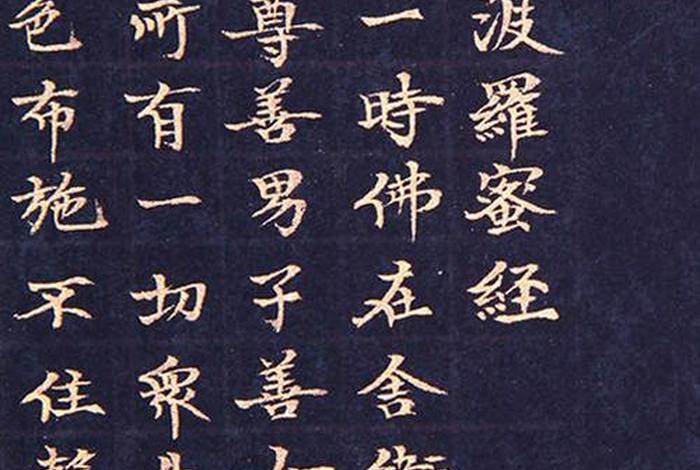 波羅蜜經
一時佛在舍衛
尊善男子善女
所有一切衆生
色布施不住聲